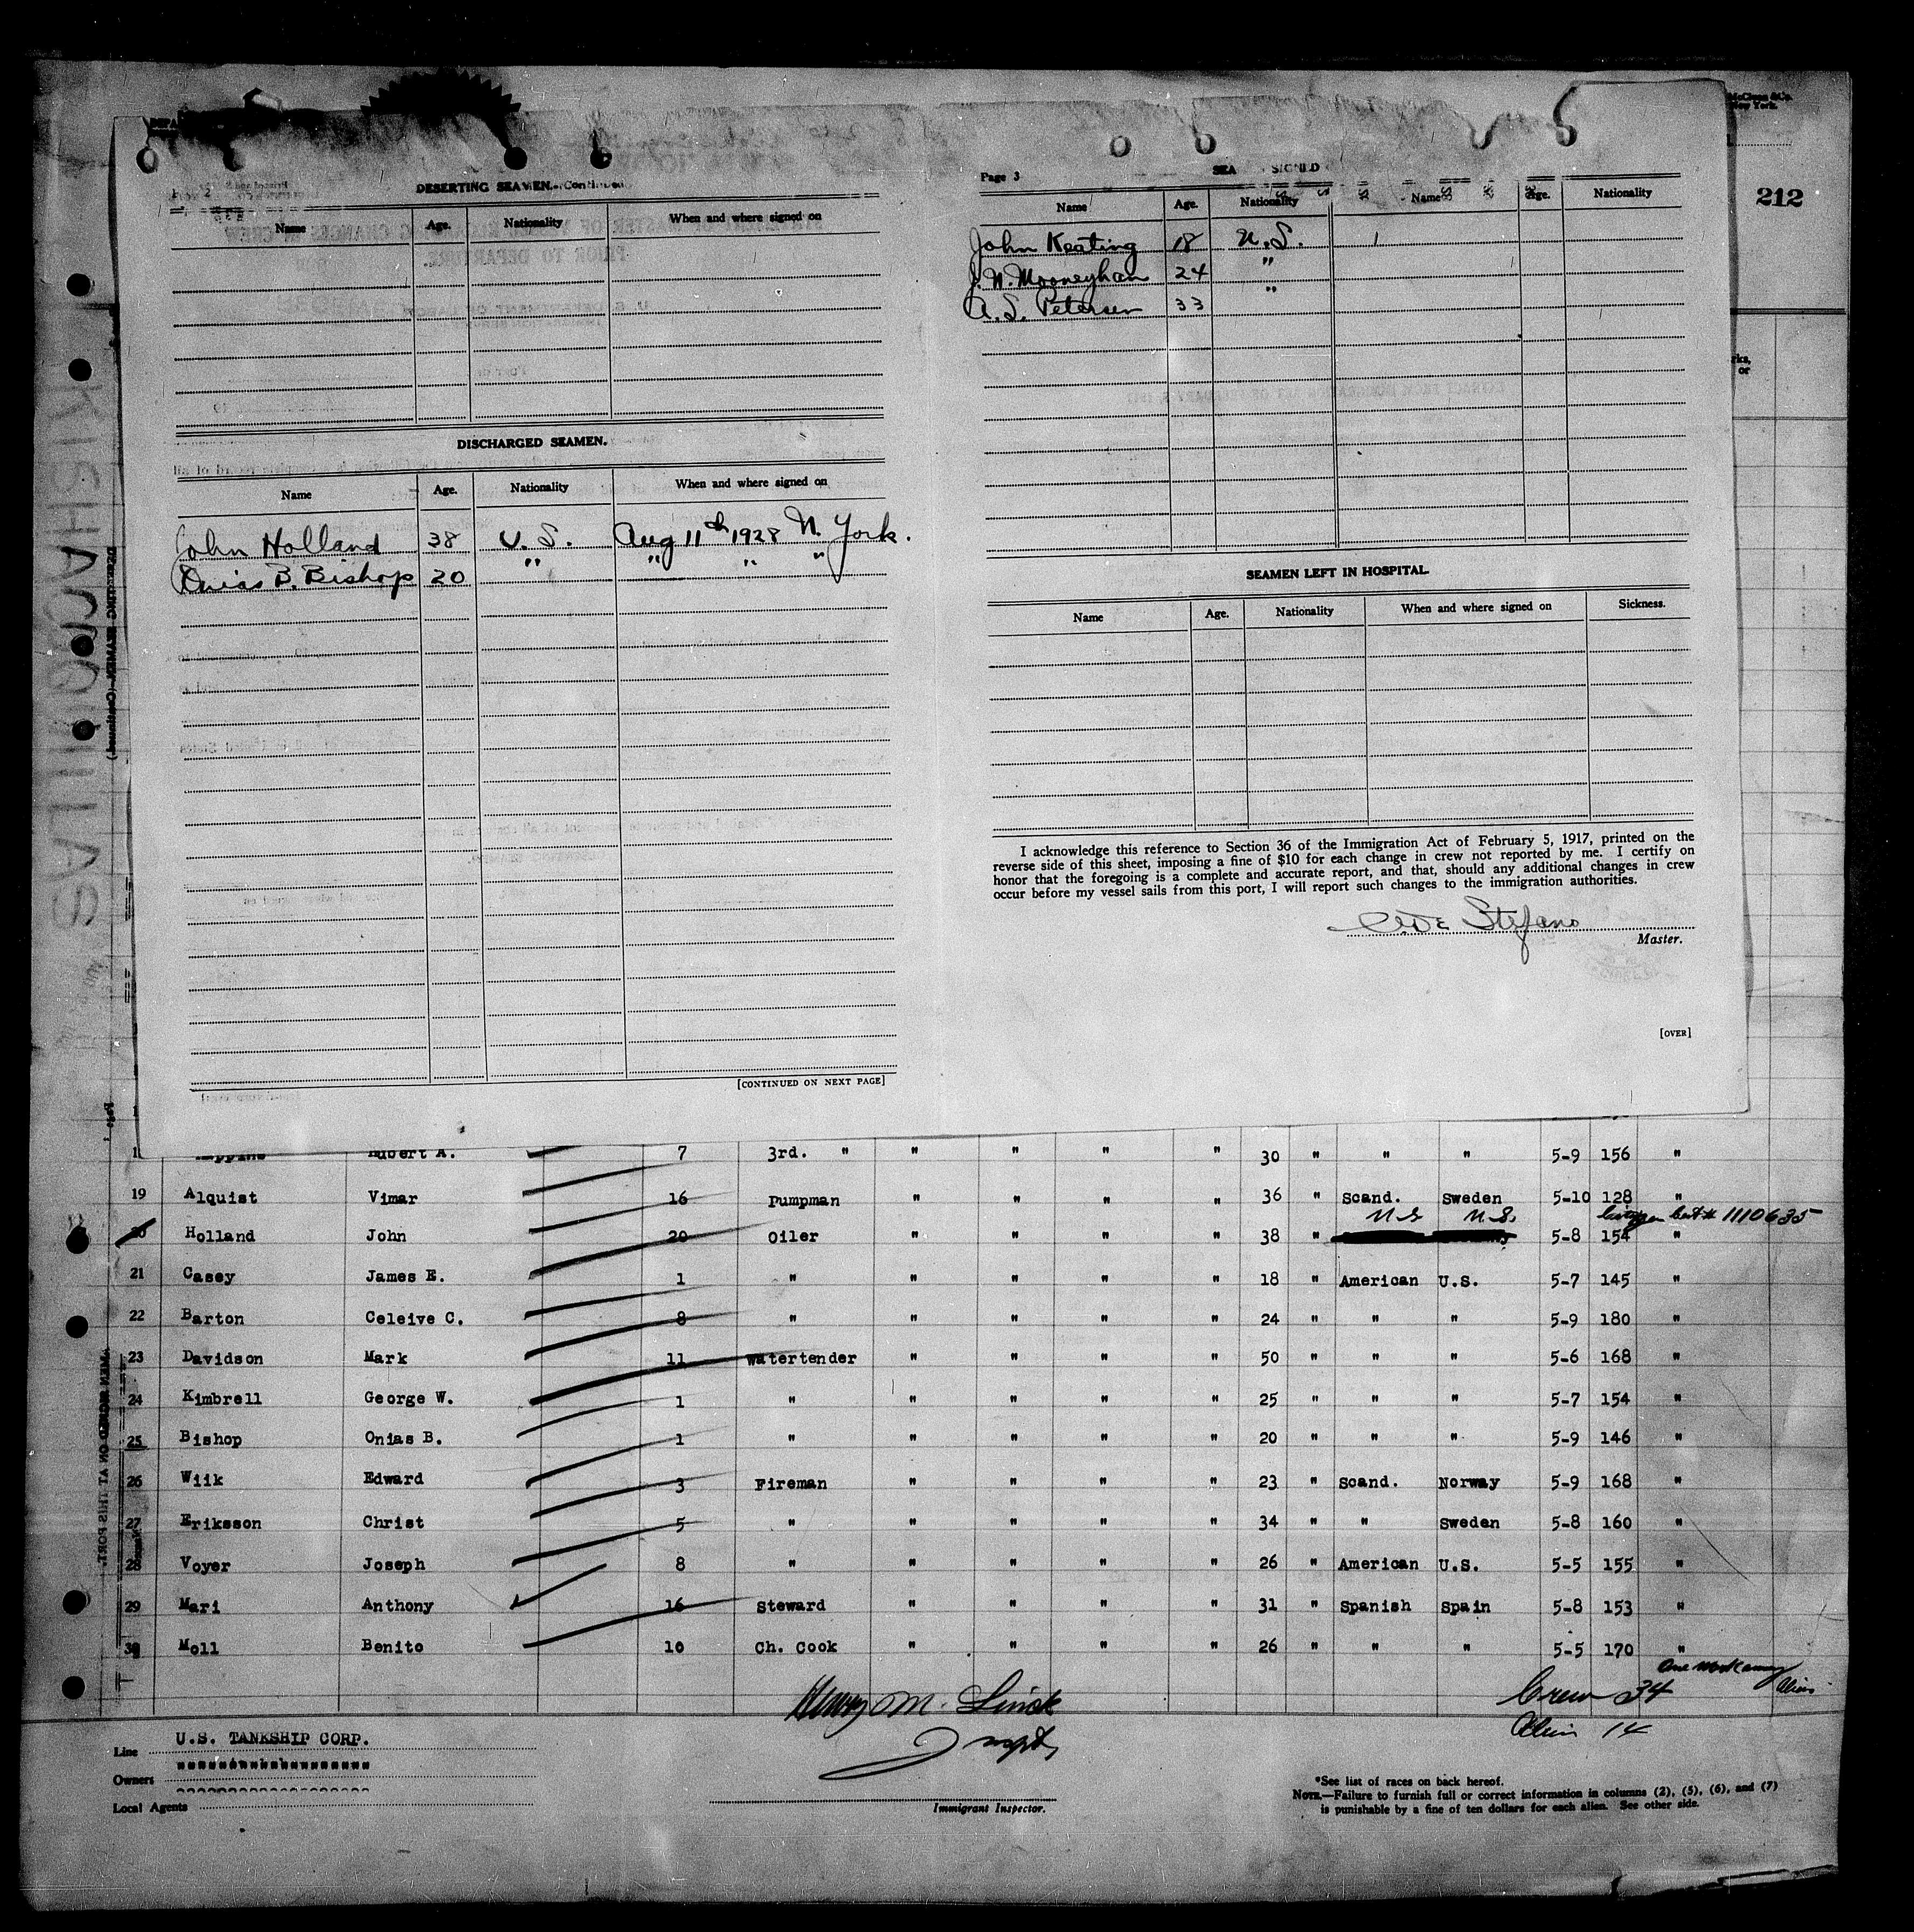 McClean & Co.
New York.
212
DESERTING SEAMEN. (Continued)
Name Age. Nationality When and where signed on
DISCHARGED SEAMEN.
Name Age. Nationality When and where signed on
John Holland 38 U.S. Aug 11th 1928 N. York.
Onias B. Bishop 20 " " " "
[CONTINUED ON NEXT PAGE]
Page 3
SEA SIGNED
Name Age. Nationality Name Age. Nationality
John Keating 18 U.S.
J. N. Mooneyhan 24 "
A. S. Petersen 33 "
SEAMEN LEFT IN HOSPITAL.
Name Age. Nationality When and where signed on Sickness.
I acknowledge this reference to Section 36 of the Immigration Act of February 5, 1917, printed on the
reverse side of this sheet, imposing a fine of $10 for each change in crew not reported by me. I certify on
honor that the foregoing is a complete and accurate report, and that, should any additional changes in crew
occur before my vessel sails from this port, I will report such changes to the immigration authorities.
De Stefano
Master.
[OVER]
Hubert A. 7 3rd. " " " " " 30 " " " 5-9 156 "
19 Alquist Vimar 16 Pumpman " " " " 36 " Scand. Sweden 5-10 128 "
U.S. U.S. Cert # 1110635
20 Holland John 20 Oiler " " " " 38 " 5-8 154 "
21 Casey James E. 1 " " " " " 18 " American U.S. 5-7 145 "
22 Barton Celeive C. 8 " " " " " 24 " " " 5-9 180 "
23 Davidson Mark 11 Watertender " " " " 50 " " " 5-6 168 "
24 Kimbrell George W. 1 " " " " " 25 " " " 5-7 154 "
25 Bishop Onias B. 1 " " " " " 20 " " " 5-9 146 "
26 Wiik Edward 3 Fireman " " " " 23 " Scand. Norway 5-9 168 "
27 Eriksson Christ 5 " " " " " 34 " " Sweden 5-8 160 "
28 Voyer Joseph 8 " " " " " 26 " American U.S. 5-5 155 "
29 Mari Anthony 16 Steward " " " " 31 " Spanish Spain 5-8 153 "
30 Moll Benito 10 Ch. Cook " " " " 26 " " " 5-5 170 "
One workaway Alien
Crew 34
Alien 14
Henry M. Linck
Inspt,
Immigrant Inspector.
Line U.S. TANKSHIP CORP.
Owners " " " " " " " " " " " " " " " " " "
Local Agents
*See list of races on back hereof.
NOTE.—Failure to furnish full or correct information in columns (2), (5), (6), and (7)
is punishable by a fine of ten dollars for each alien. See other side.